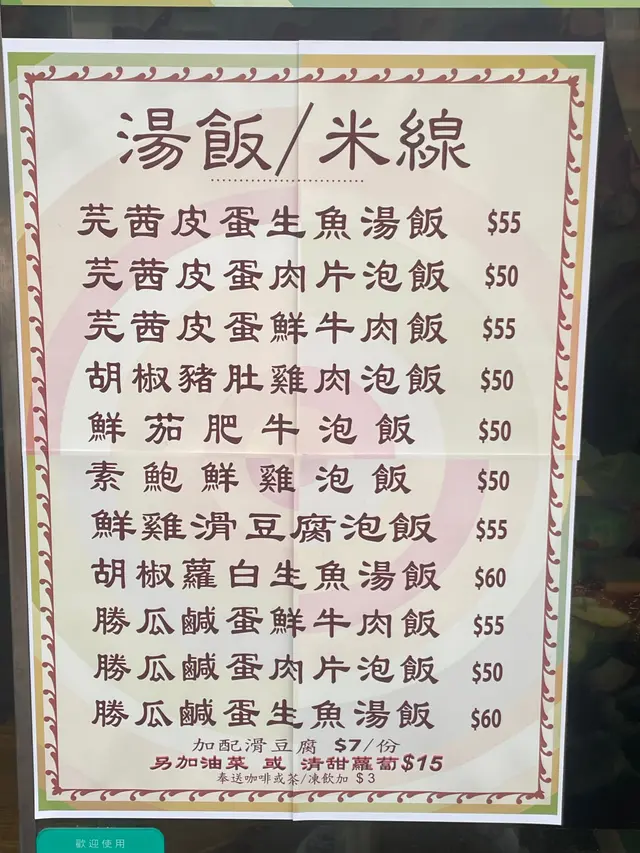 湯飯/米線
芫茜皮蛋生魚湯飯 $55
芫茜皮蛋肉片泡飯 $50
芫茜皮蛋鮮牛肉飯 $55
胡椒豬肚雞肉泡飯 $50
鮮茄肥牛泡飯 $50
素鮑鮮雞泡飯 $50
鮮雞滑豆腐泡飯 $55
胡椒蘿白生魚湯飯 $60
勝瓜鹹蛋鮮牛肉飯 $55
勝瓜鹹蛋肉片泡飯 $50
勝瓜鹹蛋生魚湯飯 $60
加配滑豆腐 $7/份
另加油菜 或 清甜蘿蔔$15
奉送咖啡或茶/凍飲加 $3
歡迎使用